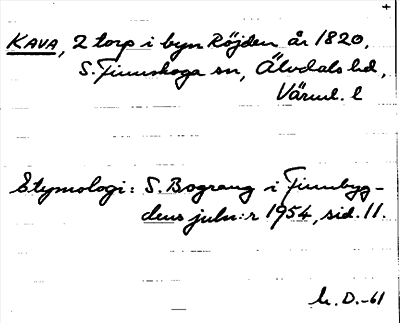 KAVA, 2 torp i byn Röjden år 1820,
S. Finnskoga sn, Älvdals hd,
Värml. l
Etymologi: S. Bograng i Finnbyg-
dens juln:r 1954, sid. 11.
h. D.-61